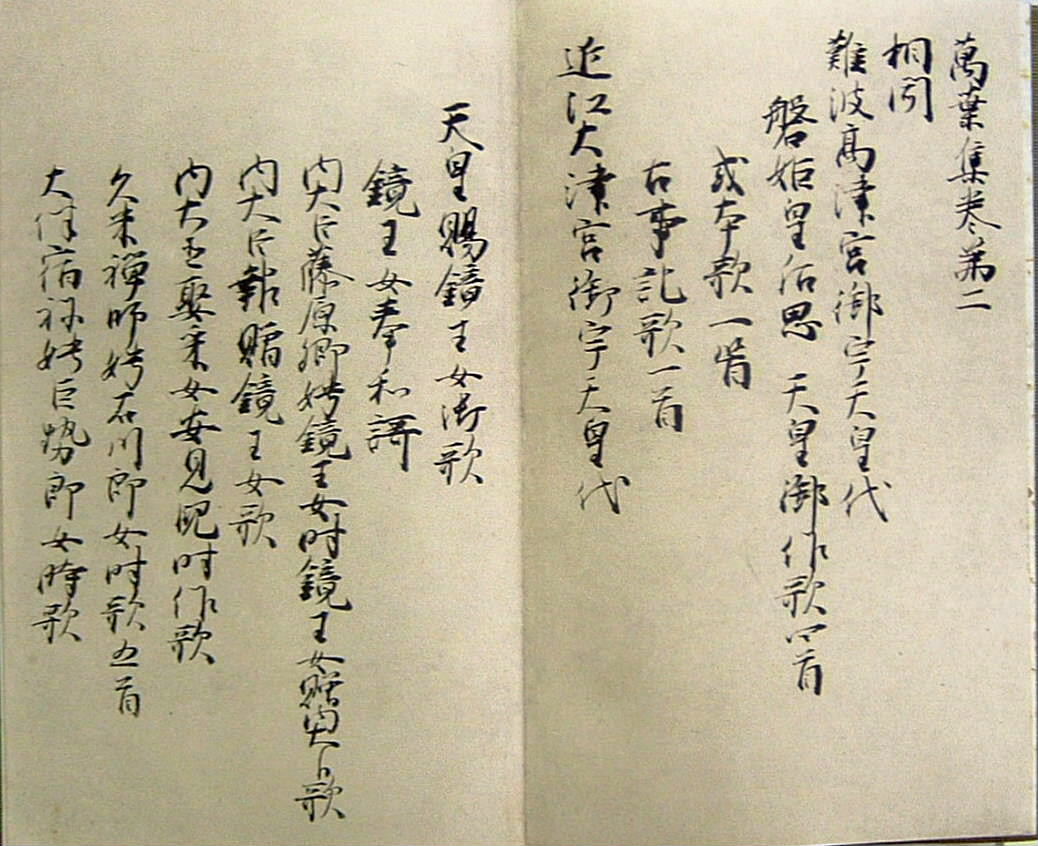 萬葉集巻第二
相聞
難波高津宮御宇天皇代
磐姫皇后思 天皇御作歌四首
或本歌一首
古事記歌一首
近江大津宮御宇天皇代
天皇賜鏡王女御歌
鏡王女奉和謌
内大臣藤原卿娉鏡王女時鏡王女贈内大臣歌
内大臣報贈鏡王女歌
内大臣娶采女安見児時作歌
久米禅師娉石川郎女時歌五首
大伴宿祢娉巨勢郎女時歌